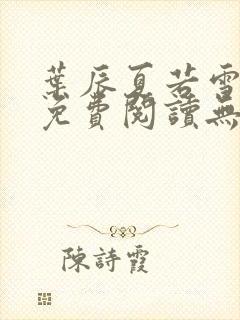 葉辰夏若雪
免費閱讀無
陳詩霞